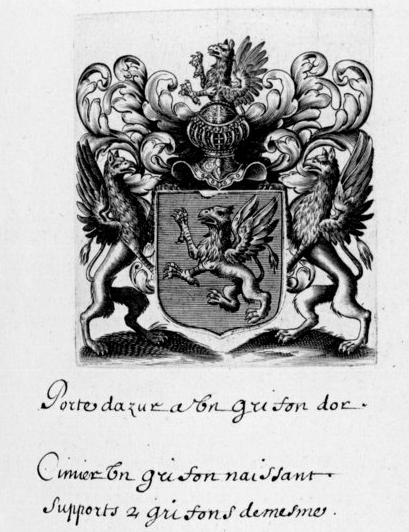 Porte dazur a Vn grifon dor.
Cimier Vn grifon naissant.
Supports 2 grifons demesme.